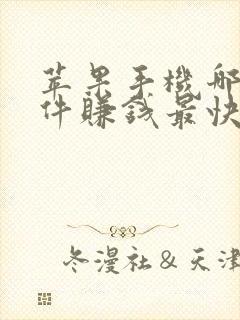 苹果手機哪
件賺錢最快
冬漫社&天津